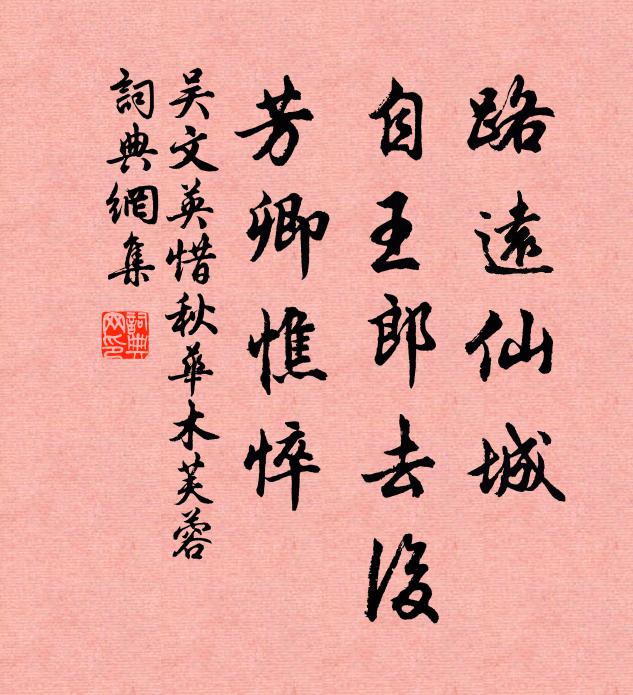 路遠仙城
自王郎去後
芳卿憔悴
吴文英惜秋華木芙蓉
詞典網集
詞典网印